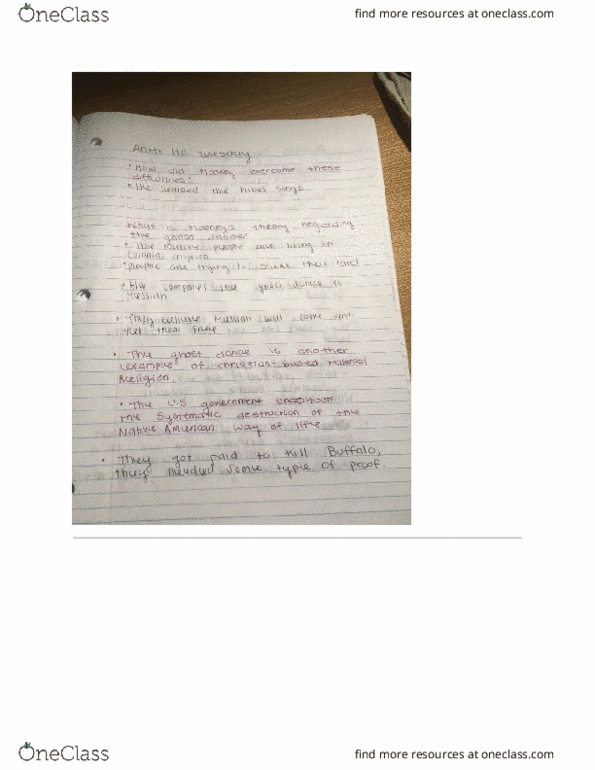 OneClass
find more resources at oneclass.com
Anth HE Tuesday
• How did Mooney overcome these
difficulties?
• He learned the tribes songs
What is Mooney's theory regarding
the ghost dance
• The Native people are living in
Colonial
• people are trying to their land
• He compares the ghost dance to
Messiah
• They believe Messiah will come and
them free
• The ghost dance is another
example of christian-based
Religion
• The U.S government
the Systematic destruction of the
Native American way of life
• They got paid to kill Buffalo,
they needed some type of proof.
OneClass
find more resources at oneclass.com